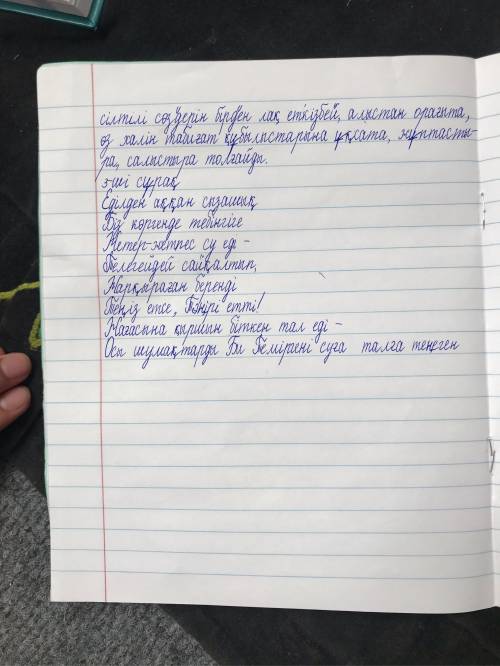 сілтілі сөздерін бірден лақ еткізбей, алыстан орағыта,
өз халін табиғат құбылыстарына ұқсата, жұптасты-
ра, салыстыра толғайды.
5-ші сұрақ
Еділден аққан сызашық
Біз көргенде тебінгіге
Жетер-жетпес су еді –
Телегейдей сайқалтып,
Жарқыраған беренді
Теңіз етсе, Тәңірі етті!
Жағасына қыршын біткен тал еді –
Осы шумақтарды Би Темірғені суға талға теңеген